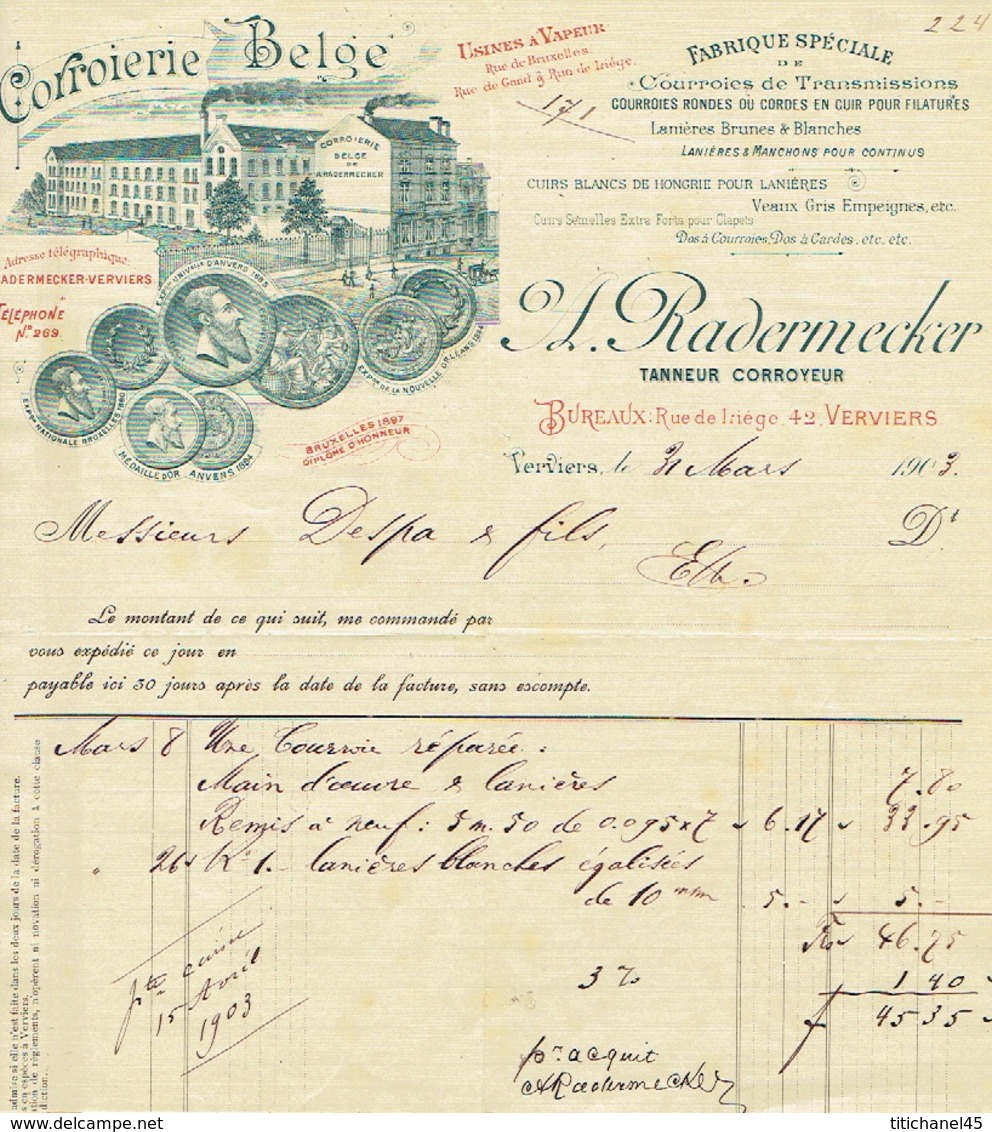 224
Corroierie Belge
USINES À VAPEUR
Rue de Bruxelles.
Rue de Gand & Rue de Liége.
171
FABRIQUE SPÉCIALE
DE
Courroies de Transmissions
COURROIES RONDES OU CORDES EN CUIR POUR FILATURES
Lanières Brunes & Blanches
LANIÈRES & MANCHONS POUR CONTINUS
CUIRS BLANCS DE HONGRIE POUR LANIÈRES
Veaux Gris Empeignes, etc.
Cuirs Semelles Extra Forts pour Clapets
Dos à Courroies, Dos à Cardes, etc. etc.
CORROIERIE
BELGE
DE
A. RADERMECKER
Adresse télégraphique:
RADERMECKER-VERVIERS
TÉLÉPHONE
N° 269.
A. Radermecker
TANNEUR CORROYEUR
BUREAUX: Rue de Liége, 42, VERVIERS
EXPON UNIVELLE D'ANVERS 1885
EXPON DE LA NOUVELLE ORLÉANS 1884
EXPON NATIONALE BRUXELLES 1880
MÉDAILLE D'OR ANVERS 1894
BRUXELLES 1897
DIPLOME D'HONNEUR
Verviers, le 31 Mars 1903.
Messieurs Despa & fils, Dt
E/V.
Le montant de ce qui suit, me commandé par
vous expédié ce jour en
payable ici 30 jours après la date de la facture, sans escompte.
Mars 8 Une Courroie réparée:
Main d'œuvre & lanières 7.80
Remis à neuf: 5 m. 50 de 0.095 x 7 6.17 33.95
" 26 Ko 1.- lanières blanches égalisées
de 10 mm 5.- 5.-
Frs 46.75
3% 1 40
f 45 35
pte caisse
15 Avril
1903
pr acquit
A Radermecker
admise si elle n'est faite dans les deux jours de la date de la facture.
s en espèces à Verviers.
ation de règlements, n'opèrent ni novation ni dérogation à cette clause
diction.
titichanel45